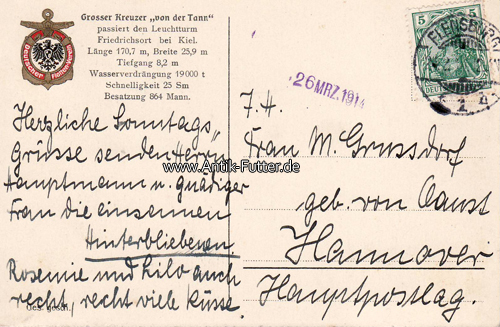 Grosser Kreuzer „von der Tann"
passiert den Leuchtturm
Friedrichsort bei Kiel.
Länge 170,7 m, Breite 25,9 m
Tiefgang 8,2 m
Wasserverdrängung 19000 t
Schnelligkeit 25 Sm
Besatzung 864 Mann.
Deutscher Flotten-Verein
5 5
26 MRZ. 1914
Herzliche Sonntags„
Grüsse senden Herrn
Hauptmann u. gnädiger
Frau die einsamen
Hinterbliebenen
Rosemie und Lilo auch
recht, recht viele Küsse.
Ges. gesch.
www.Antik-Futter.de
F. H.
Frau M. Grussdorf
geb. von
Hannover
Hauptpostlag.